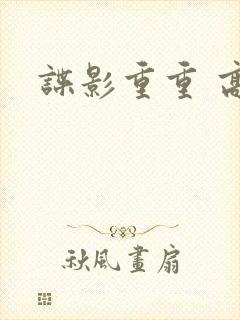 諜影重重 高
秋風畫扇